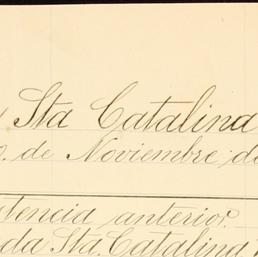 Sta Catalina
o. de Noviembre de
stencia anterior.
da Sta. Catalina